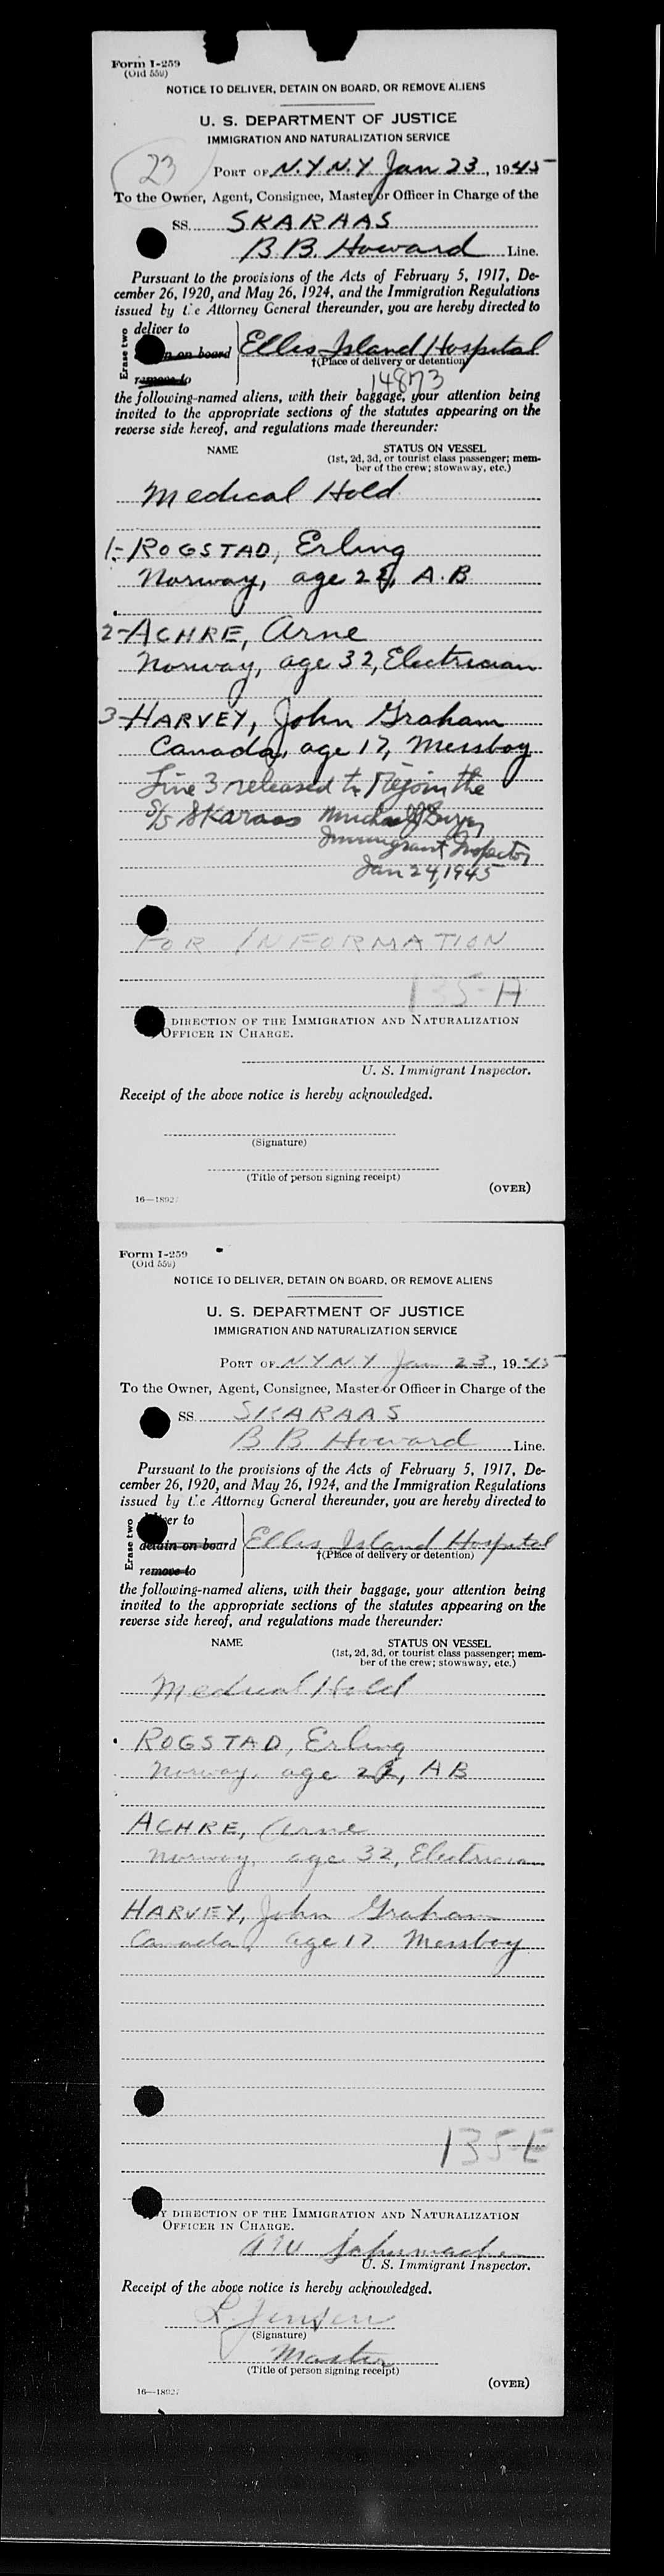 Form I-259
(Old 559)
NOTICE TO DELIVER, DETAIN ON BOARD, OR REMOVE ALIENS
U. S. DEPARTMENT OF JUSTICE
IMMIGRATION AND NATURALIZATION SERVICE
23
PORT OF N.Y.N.Y. Jan 23, 1945
To the Owner, Agent, Consignee, Master or Officer in Charge of the
SS. SKARAAS
B.B. Howard Line.
Pursuant to the provisions of the Acts of February 5, 1917, De-
cember 26, 1920, and May 26, 1924, and the Immigration Regulations
issued by the Attorney General thereunder, you are hereby directed to
Erase two
deliver to
on board
remove to
Ellis Island Hospital
†(Place of delivery or detention)
14873
the following-named aliens, with their baggage, your attention being
invited to the appropriate sections of the statutes appearing on the
reverse side hereof, and regulations made thereunder:
NAME STATUS ON VESSEL
(1st, 2d, 3d, or tourist class passenger; mem-
ber of the crew; stowaway, etc.)
Medical Hold
1- ROGSTAD, Erling
Norway, age 2 , A.B
2- ACHRE, Arne
Norway, age 32, Electrician
3- HARVEY, John Graham
Canada, age 17, Messboy
Line 3 released to Rejoin the
S/S Skaraas
Immigrant Inspector
Jan 24, 1945
FOR INFORMATION
135-A
DIRECTION OF THE IMMIGRATION AND NATURALIZATION
OFFICER IN CHARGE.
U. S. Immigrant Inspector.
Receipt of the above notice is hereby acknowledged.
(Signature)
(Title of person signing receipt)
(OVER)
16—18927
Form I-259
(Old 559)
NOTICE TO DELIVER, DETAIN ON BOARD, OR REMOVE ALIENS
U. S. DEPARTMENT OF JUSTICE
IMMIGRATION AND NATURALIZATION SERVICE
PORT OF N Y N Y Jan 23, 1945
To the Owner, Agent, Consignee, Master or Officer in Charge of the
SS. SKARAAS
B B Howard Line.
Pursuant to the provisions of the Acts of February 5, 1917, De-
cember 26, 1920, and May 26, 1924, and the Immigration Regulations
issued by the Attorney General thereunder, you are hereby directed to
Erase two
er to
detain on board
remove to
Ellis Island Hospital
†(Place of delivery or detention)
the following-named aliens, with their baggage, your attention being
invited to the appropriate sections of the statutes appearing on the
reverse side hereof, and regulations made thereunder:
NAME STATUS ON VESSEL
(1st, 2d, 3d, or tourist class passenger; mem-
ber of the crew; stowaway, etc.)
Medical Hold
ROGSTAD, Erling
Norway, age 2 , AB
ACHRE, Arne
Norway, age 32, Electrician
HARVEY, John Graham
Canada, age 17 Messboy
135-E
Y DIRECTION OF THE IMMIGRATION AND NATURALIZATION
OFFICER IN CHARGE.
U. S. Immigrant Inspector.
Receipt of the above notice is hereby acknowledged.
L. Jensen
(Signature)
Master
(Title of person signing receipt)
(OVER)
16—18927